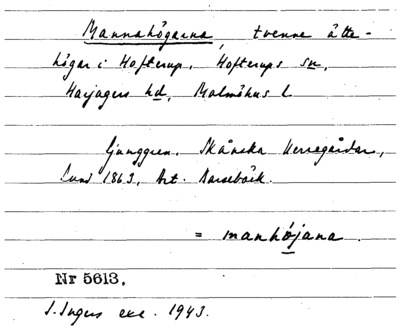 Mannahögarna, tvenne ätte-
högar i Hofterup, Hofterups sn,
Harjagers hd, Malmöhus l
Ljunggren. Skånska Herregårdar,
Lund 1863, Art. Barsebäck.
= manhöjana.
Nr 5613.
I. Ingers exc. 1943.